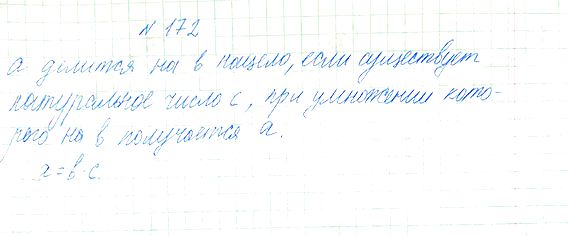 № 172
a делится на в нацело, если существует
натуральное число c, при умножении кото-
рого на в получается a.
a = в · c.